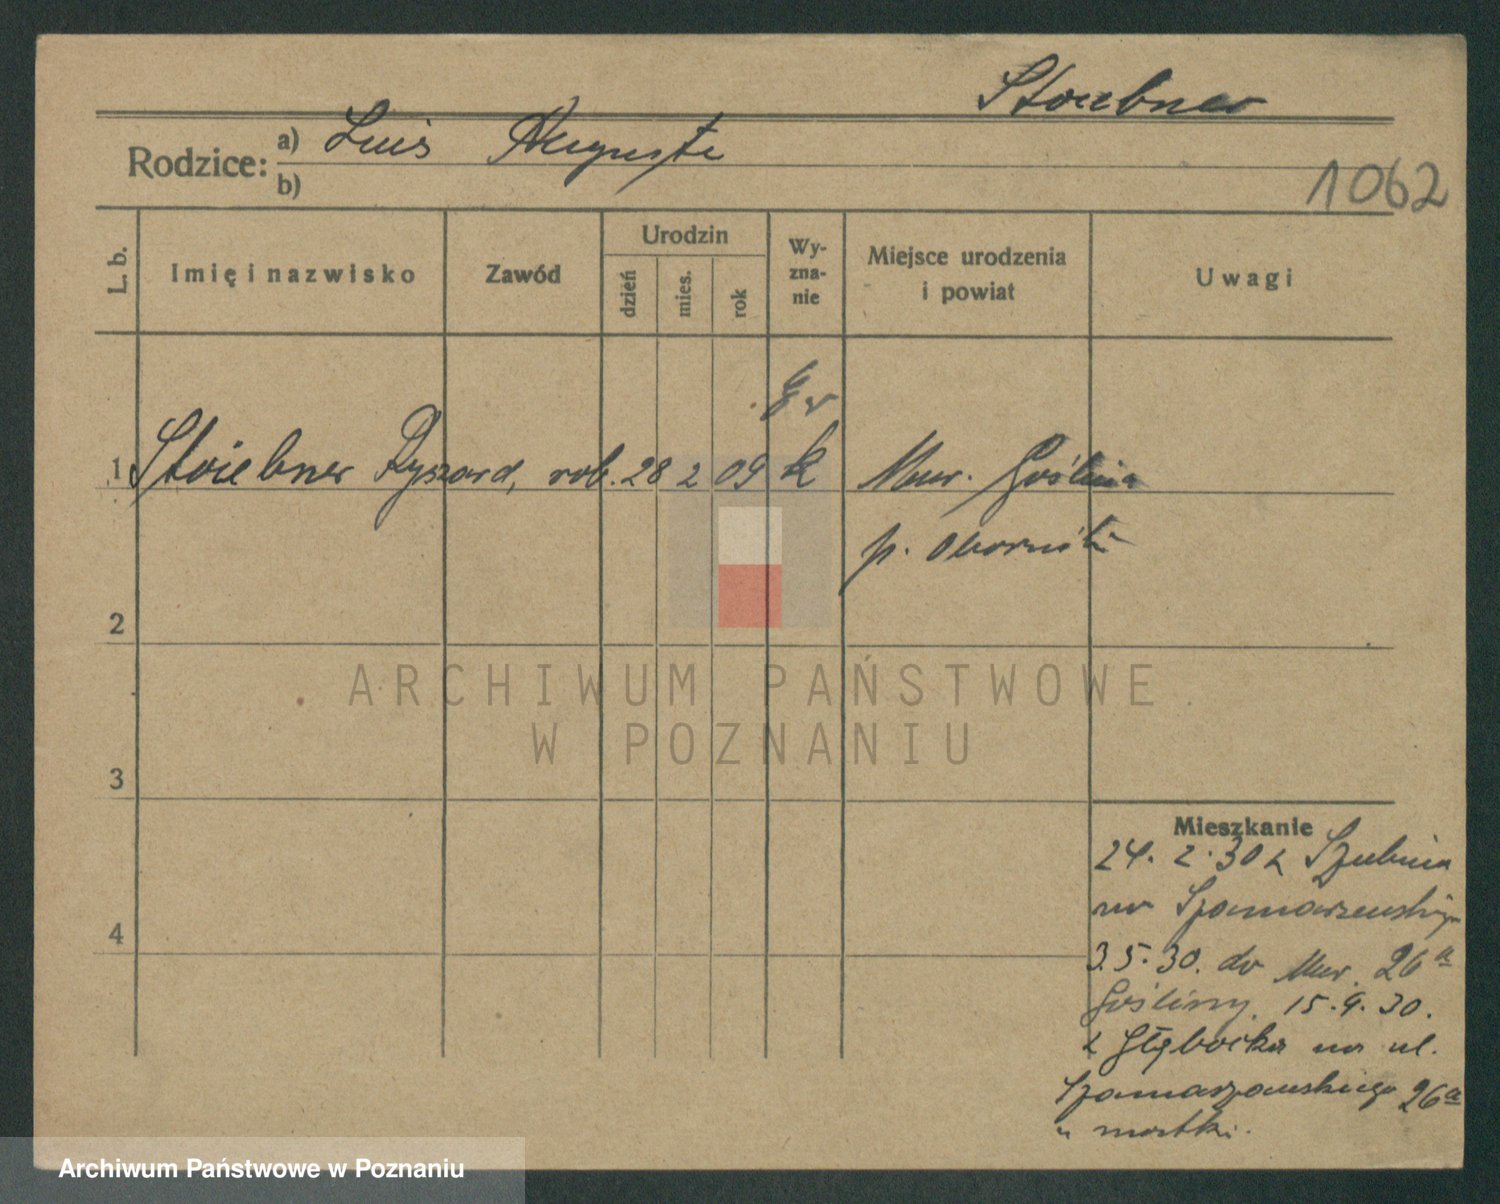 Stoebner
Rodzice: a) Luis Auguste
b)
1062
L. b.
Imię i nazwisko
Zawód
Urodzin
dzień
mies.
rok
Wy-
zna-
nie
Miejsce urodzenia
i powiat
Uwagi
1 Stoiebner Ryszard, rob. 28 2 09 k Mur. Goślina
p. Oborniki
2
3
4
Mieszkanie
24. 2. 30 z Szubina
na Szamarzewskiego
3.5.30. do Mur. 26a
Gośliny. 15.9.30.
z Głęboćka na ul.
Szamarzewskiego 26a
u matki.
ARCHIWUM PAŃSTWOWE
W POZNANIU
Archiwum Państwowe w Poznaniu